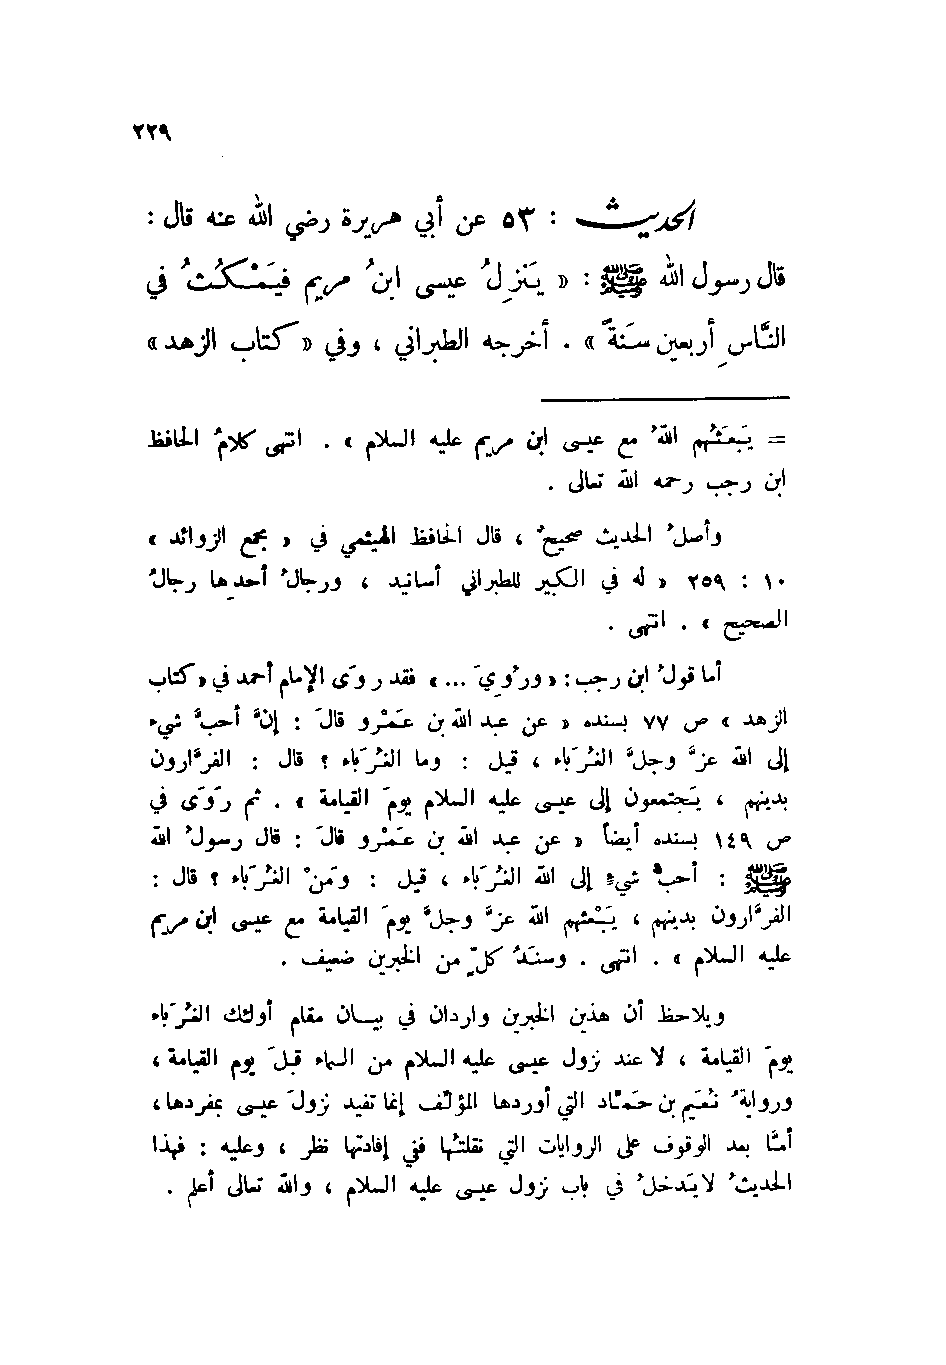 ٢٢٩
الحديث : ٥٣ عن أبي هريرة رضي الله عنه قال :
قال رسول الله ﷺ : « يَنزِلُ عيسى ابنُ مريم فيَمْكُثُ في
النَّاسِ أربعين سَنَةً » . أخرجه الطبراني ، وفي « كتاب الزهد »
= يَبعَثُهم اللهُ مع عيسى ابن مريم عليه السلام » . انتهى كلامُ الحافظ
ابن رجب رحمه الله تعالى .
وأصلُ الحديث صحيحٌ ، قال الحافظ الهيثمي في « مجمع الزوائد »
١٠ : ٢٥٩ « له في الكبير للطبراني أسانيد ، ورجالُ أحدِها رجالُ
الصحيح » . انتهى .
أما قولُ ابن رجب : « ورُوِيَ ... » فقد روَى الإمام أحمد في « كتاب
الزهد » ص ٧٧ بسنده « عن عبد الله بن عَمْرو قالَ : إنَّ أحبَّ شيء
إلى الله عزَّ وجلَّ الغُرَباء ، قيل : وما الغُرَباء ؟ قال : الفرَّارون
بدينهم ، يَجتمعون إلى عيسى عليه السلام يومَ القيامة » . ثم رَوَى في
ص ١٤٩ بسنده أيضاً « عن عبد الله بن عَمْرو قالَ : قال رسولُ الله
ﷺ : أحبُّ شيءٍ إلى الله الغُرَباء ، قيل : ومَنْ الغُرَباء ؟ قال :
الفرَّارون بدينهم ، يَبْعثُهم الله عزَّ وجلَّ يومَ القيامة مع عيسى ابن مريم
عليه السلام » . انتهى . وسنَدُ كلٍّ من الخبرين ضعيف .
ويلاحظ أن هذين الخبرين واردان في بيــان مقام أولئك الغُرَباء
يومَ القيامة ، لا عند نزول عيسى عليه السلام من السماء قبلَ يوم القيامة ،
وروايةُ نُعَيم بن حَمَّاد التي أوردها المؤلّف إنما تفيد نزولَ عيسى بمفردها ،
أمَّا بعد الوقوف على الروايات التي نقلتُها ففي إفادتها نظر ، وعليه : فهذا
الحديثُ لا يَدخلُ في باب نزول عيسى عليه السلام ، والله تعالى أعلم .